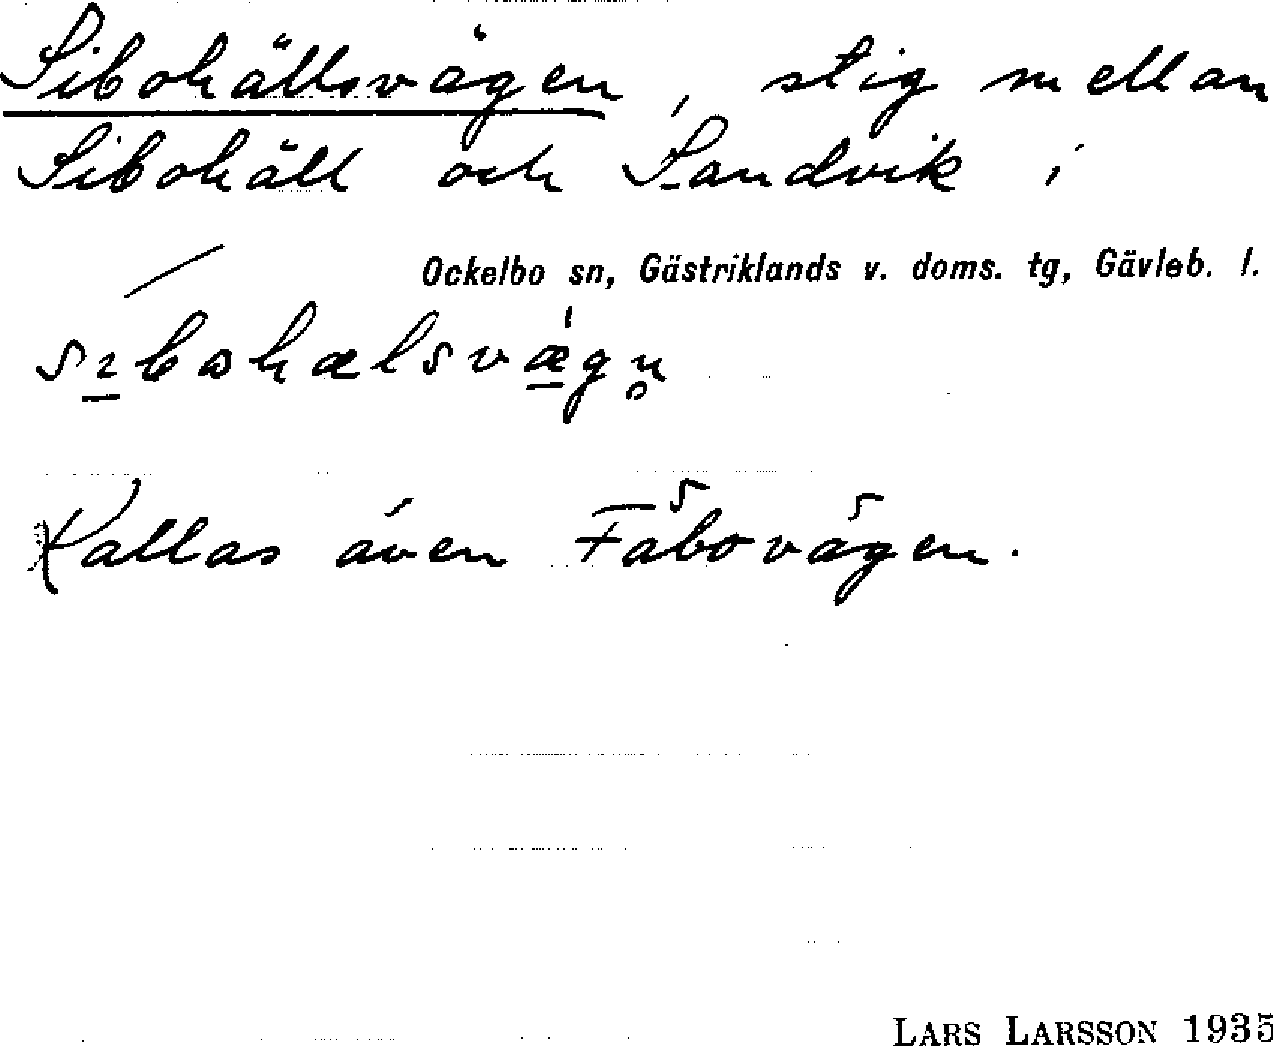 Sibohällsvägen, stig mellan
Sibohäll och Sandvik i
Ockelbo sn, Gästriklands v. doms. tg, Gävleb. l.
Kallas även Fäbovägen.
LARS LARSSON 1935